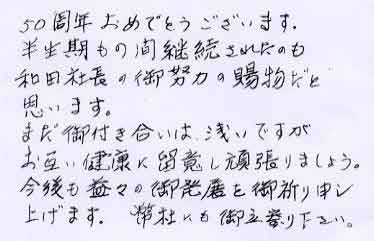 50周年おめでとうございます.
半生期もの間継続されたのも
和田社長の御努力の賜物だと
思います。
まだ御付き合いは、浅いですが
お互い健康に留意し頑張りましょう。
今後も益々の御発展を御祈り申し
上げます。 弊社にも御立寄り下さい。